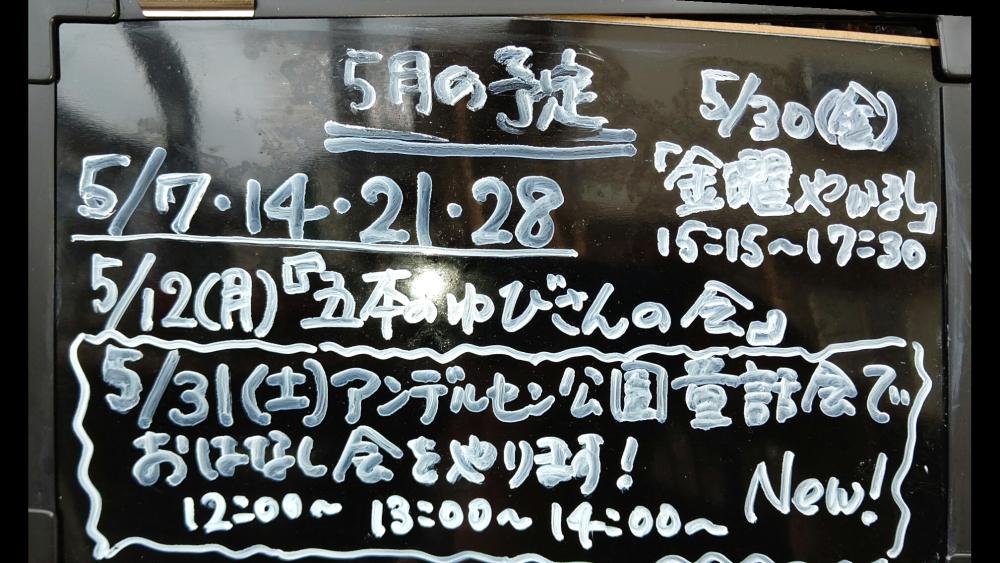 5月の予定
5/7・14・21・28
5/30(金)
「金曜やかまし」
15:15～17:30
5/12(月)『五本のゆびさんの会』
5/31(土)アンデルセン公園童話会で
おはなし会をやります!
12:00～ 13:00～ 14:00～
New!